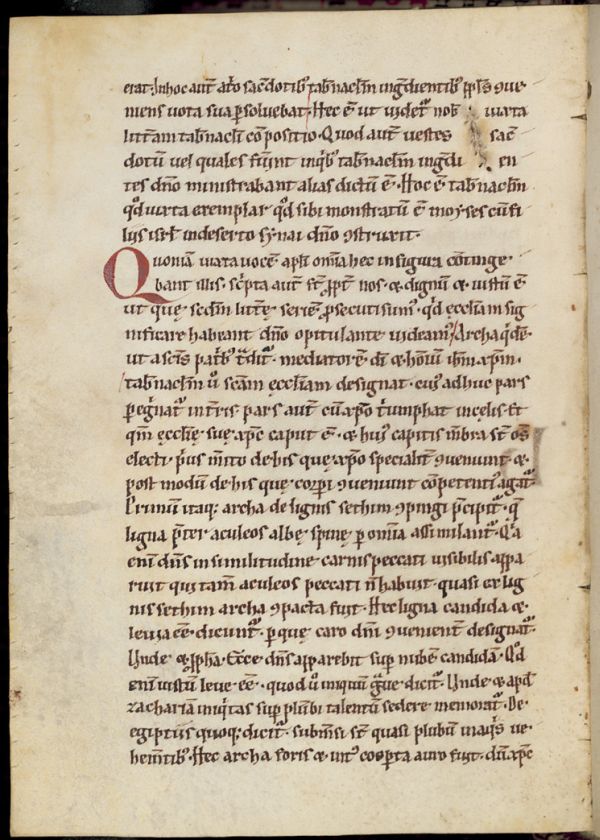 erat. Inhoc aut̄ atō sac̄dotib; tab̄nac̄lm ingr̄dientib; ppl̄s que
mens uota sua ꝑsoluebat. Hec ē ut uidet᷑ nob̄ iuxta
litt̄am tab̄nac̄li cōpositio. Quod aut̄ uestes sac̄
dotū uel quales fuer̄int inqib; tab̄nac̄lm ingr̄di en
tes dn̄o ministrabant alias dictū ē. Hoc ē tab̄nac̄lm
qd̄ iuxta exemplar qd̄ sibi monstratū ē moyses cū fi
liis isrl̄ indeserto synai dn̄o ꝯstruxit.
Quoniā iuxta uocē apl̄i om̄ia hec in figura cōtinge
bant illis. Sc̄pta aut̄ st̄ ꝓpt̄ nos. & dignū & iustū ē
ut quę scdm̄ litt̄ę seriē ꝓsecuti sum᷒. qd̄ ęccl̄iam sig
nificare habeant dn̄o opitulante uideam᷒. Archa qͥdē
ut a sc̄is patr̄ib; t̄dit᷑. mediatorē dī & hoīū ih̄m xp̄m.
tab̄nac̄lm ū sc̄am ęccl̄iam designat. cui᷒ adhuc pars
peg̃nat᷑ int̄ris pars aut̄ cū xp̄o t̄umphat incęlis. Et
qm̄ ęccl̄ię suę xp̄c caput ē. & hui᷒ capitis mēbra st̄ om̄s
electi. pͥus mͥto de his que xp̄o specialit̄ ꝯueniunt &
post modū de his quę corpori ꝯueniunt cōpetent̄ agat᷑.
Primum itaq; archa de lignis sethim ꝯpingi p̄cipit᷑. q̄
ligna p̄ter aculeos albę spinę ꝑ om̄ia assimilant᷑. Qͥa
enī dn̄s in similitudine carnis peccati uisibilis appa
ruit qui tam̄ aculeos peccati n̄ habuit. quasi ex lig
nis sethim archa ꝯpacta fuit. Hec ligna candida &
leuia eē dicunt᷑. ꝑ que caro dn̄i ꝯuenient̄ designat᷑.
Unde & ꝓph̄a. Ecce dn̄s apparebit sup̄ nubē candidā. Qd̄
enī iustū leue eē. quod ū iniquū g̃ue dicit᷑. Unde & apd̄
zachariā iniqͥtas sup̄ plūbi talentū sedere memorat᷑. De
egiptiis quoq; dicit᷑. submͥsi st̄ quasi plūbum in aqͥs ue
hem̄tib;. Hec archa foris & int᷒ cooperta auro fuit. dū xp̄c